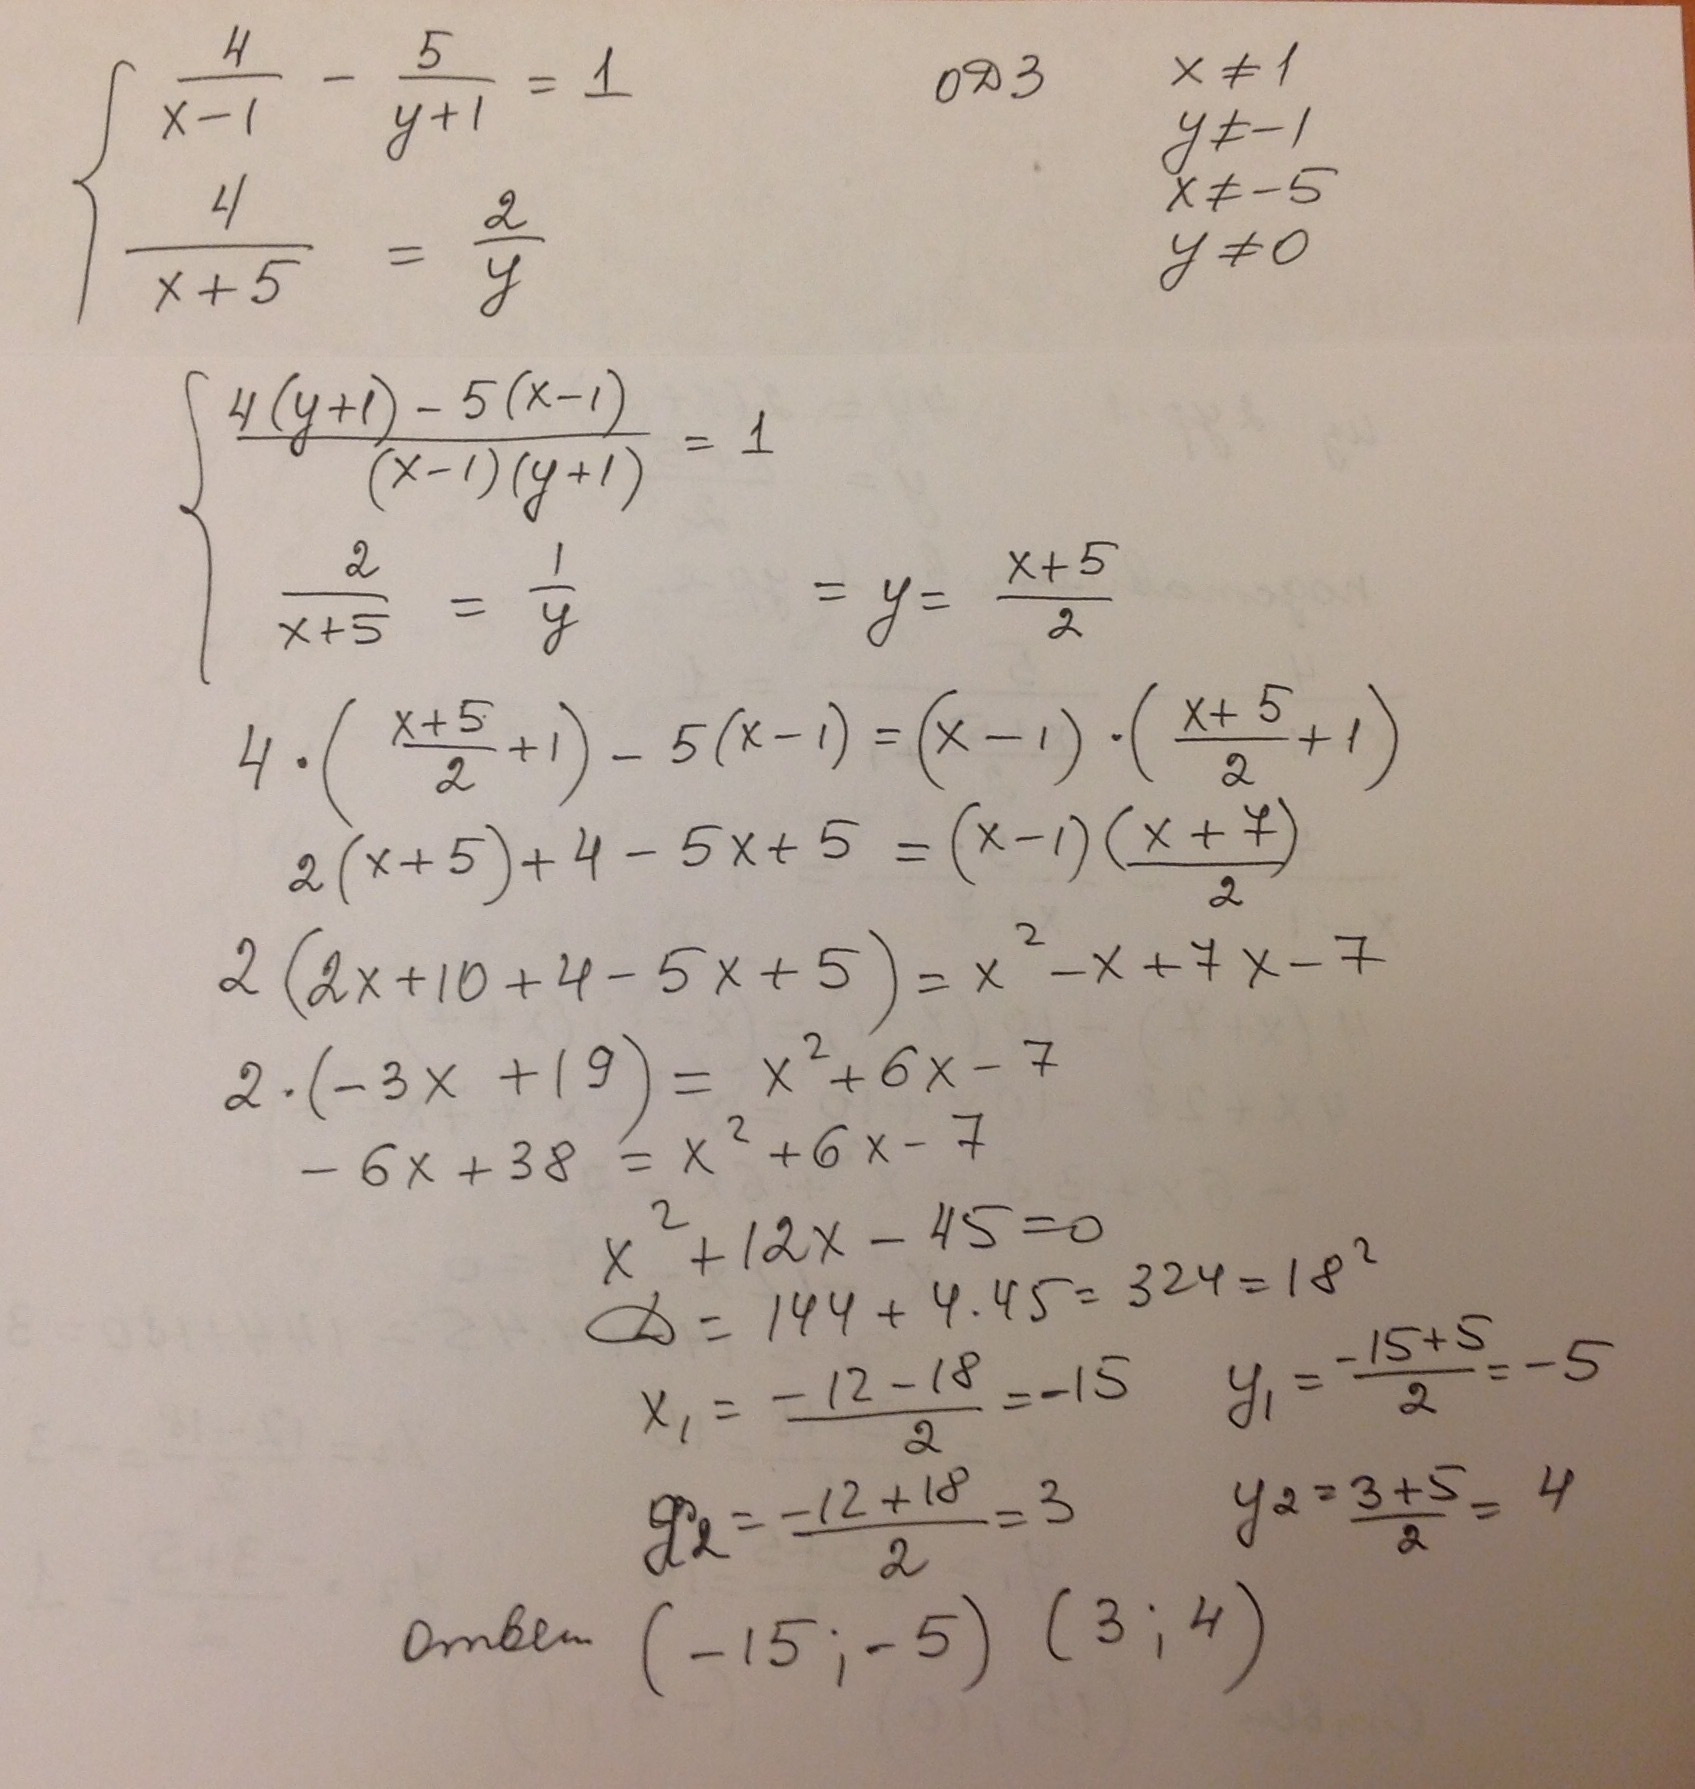 { 4/(x-1) - 5/(y+1) = 1 ОДЗ x ≠ 1
y ≠ -1
4/(x+5) = 2/y x ≠ -5
y ≠ 0
{ (4(y+1) - 5(x-1))/((x-1)(y+1)) = 1
2/(x+5) = 1/y = y = (x+5)/2
4·((x+5)/2 + 1) - 5(x-1) = (x-1)·((x+5)/2 + 1)
2(x+5) + 4 - 5x + 5 = (x-1)(x+7)/2
2(2x+10+4-5x+5) = x² - x + 7x - 7
2·(-3x+19) = x² + 6x - 7
-6x + 38 = x² + 6x - 7
x² + 12x - 45 = 0
D = 144 + 4·45 = 324 = 18²
x₁ = (-12-18)/2 = -15 y₁ = (-15+5)/2 = -5
x₂ = (-12+18)/2 = 3 y₂ = (3+5)/2 = 4
ответ (-15; -5) (3; 4)